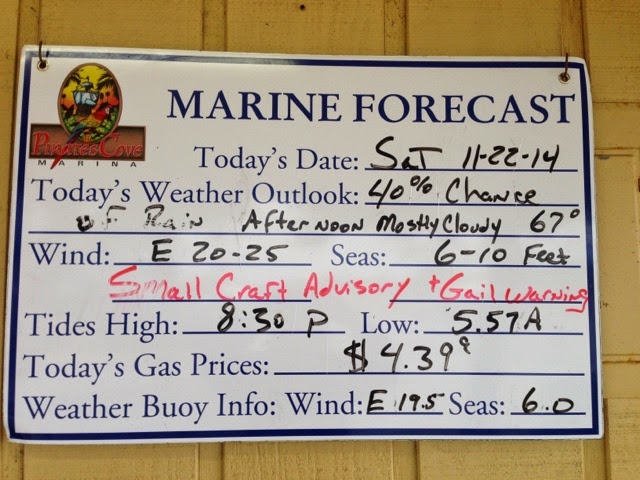 Pirate's Cove
MARINA
MARINE FORECAST
Today's Date: SaT 11-22-14
Today's Weather Outlook: 40% Chance
oF Rain Afternoon Mostly Cloudy 67°
Wind: E 20-25 Seas: 6-10 Feet
Small Craft Advisory + Gail Warning
Tides High: 8:30 P Low: 5.57A
Today's Gas Prices: $4.39⁹
Weather Buoy Info: Wind: E 19.5 Seas: 6.0